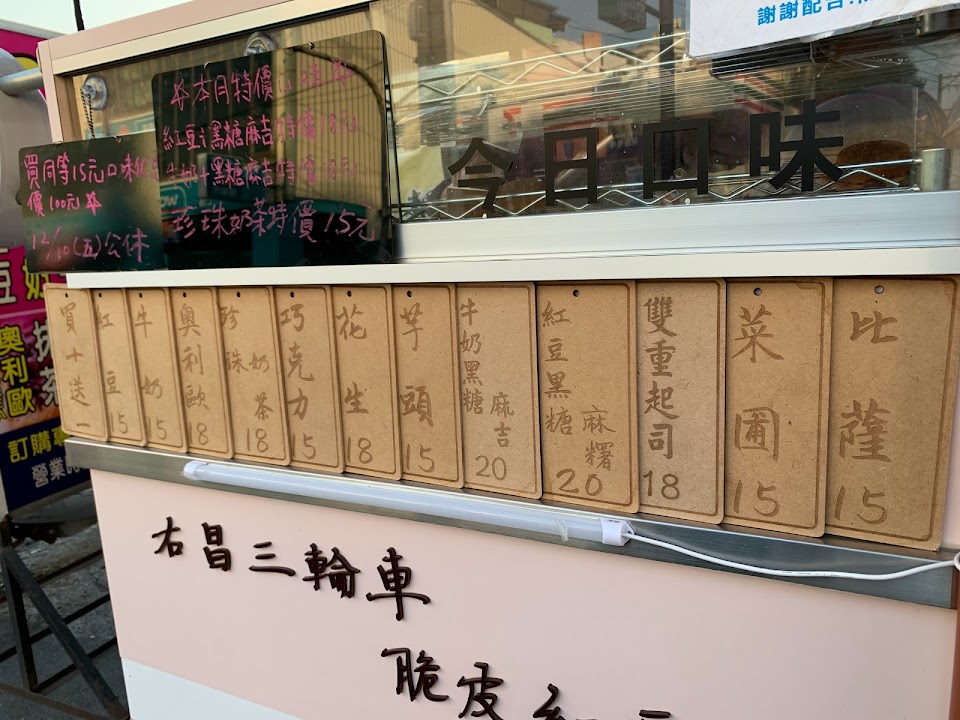 謝謝配合
本月特價
紅豆+黑糖麻吉特價
牛奶+黑糖麻吉特價
珍珠奶茶特價15元
買同等15元口味
價100元
12/10(五)公休
今日口味
買十送一
紅豆 15
牛奶 15
奧利歐 18
珍珠奶茶 18
巧克力 15
花生 18
芋頭 15
牛奶黑糖麻吉 20
紅豆黑糖麻糬 20
雙重起司 18
菜圃 15
比薩 15
右昌三輪車
脆皮紅豆
奧利歐
訂購
營業